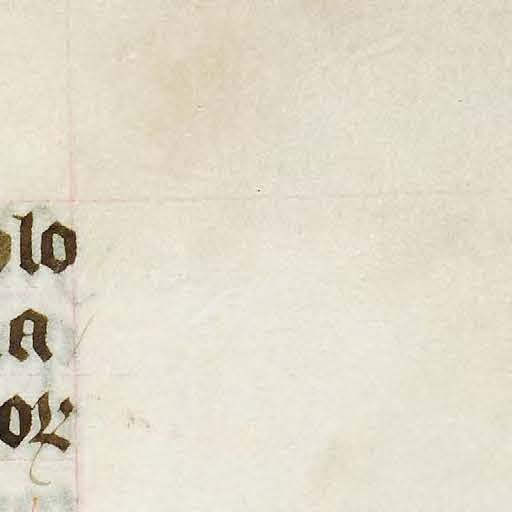 lo
a
oꝝ